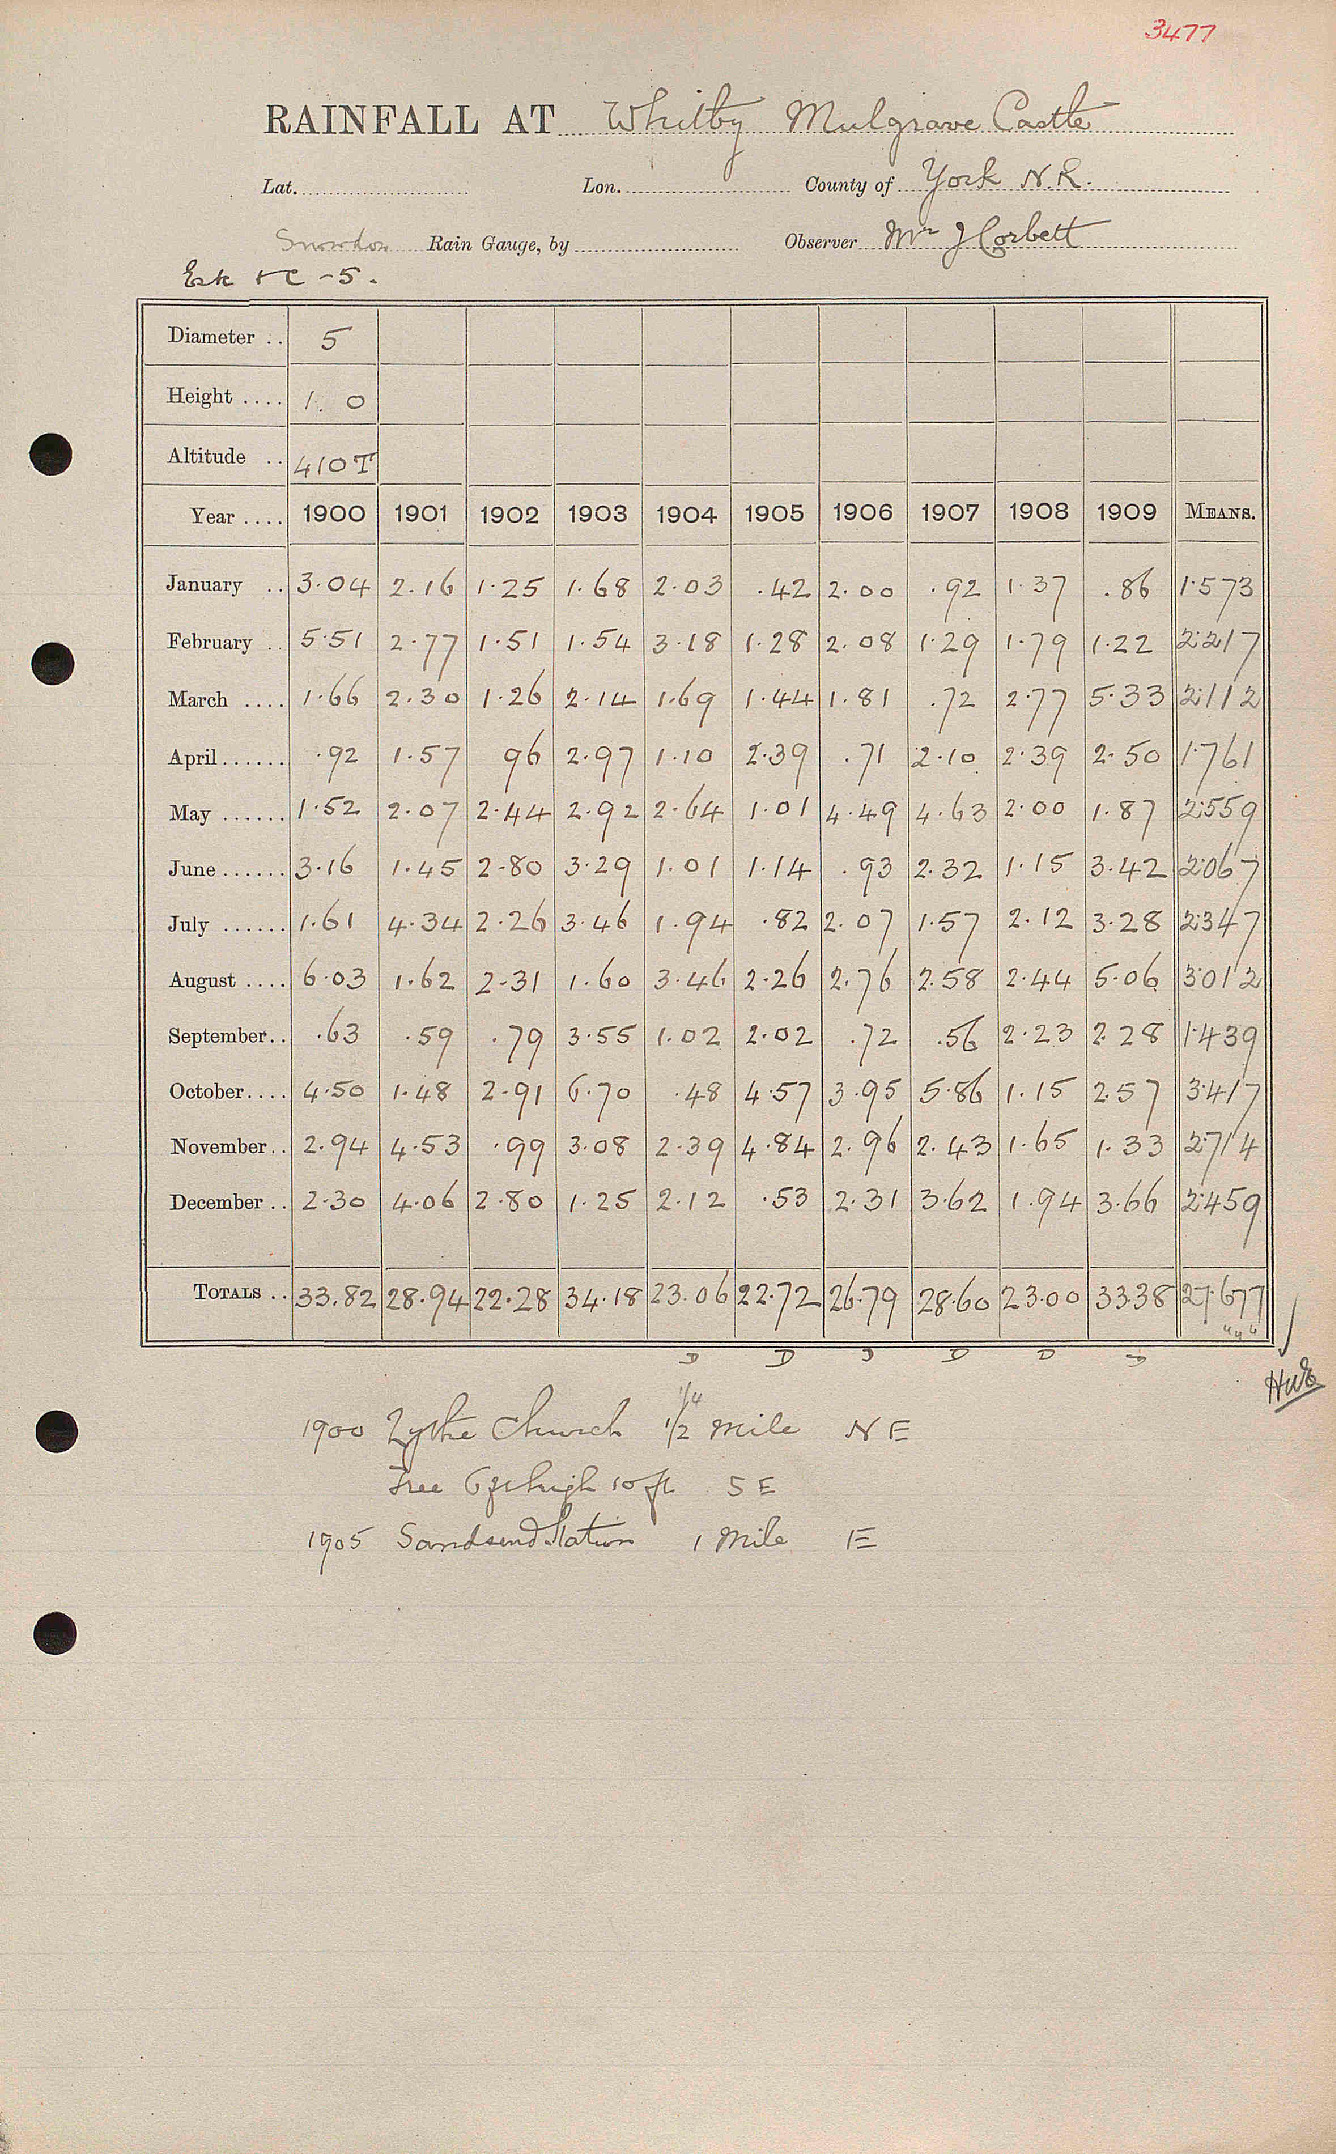 3477
RAINFALL AT Whitby Mulgrave Castle
Lat. Lon. County of York N.R.
Snowdon Rain Gauge, by Observer Mr J Corbett
Esk + C - 5.
Diameter .. 5
Height .... 1. 0
Altitude .. 410 T
Year .... 1900 1901 1902 1903 1904 1905 1906 1907 1908 1909 MEANS.
January .. 3.04 2.16 1.25 1.68 2.03 .42 2.00 .92 1.37 .86 1.573
February .. 5.51 2.77 1.51 1.54 3.18 1.28 2.08 1.29 1.79 1.22 2.217
March .... 1.66 2.30 1.26 2.14 1.69 1.44 1.81 .72 2.77 5.33 2.112
April ...... .92 1.57 96 2.97 1.10 2.39 .71 2.10 2.39 2.50 1.761
May ...... 1.52 2.07 2.44 2.92 2.64 1.01 4.49 4.63 2.00 1.87 2.559
June ...... 3.16 1.45 2.80 3.29 1.01 1.14 .93 2.32 1.15 3.42 2.067
July ...... 1.61 4.34 2.26 3.46 1.94 .82 2.07 1.57 2.12 3.28 2.347
August .... 6.03 1.62 2.31 1.60 3.46 2.26 2.76 2.58 2.44 5.06 3.012
September .. .63 .59 .79 3.55 1.02 2.02 .72 .56 2.23 2.28 1.439
October .... 4.50 1.48 2.91 6.70 .48 4.57 3.95 5.86 1.15 2.57 3.417
November .. 2.94 4.53 .99 3.08 2.39 4.84 2.96 2.43 1.65 1.33 2.714
December .. 2.30 4.06 2.80 1.25 2.12 .53 2.31 3.62 1.94 3.66 2.459
TOTALS .. 33.82 28.94 22.28 34.18 23.06 22.72 26.79 28.60 23.00 33.38 27.677
D D D D D D
1900 Lythe Church 1/4 1/2 Mile N E
Tree 6ft high 10 ft S E
1905 Sandsend Station 1 Mile E